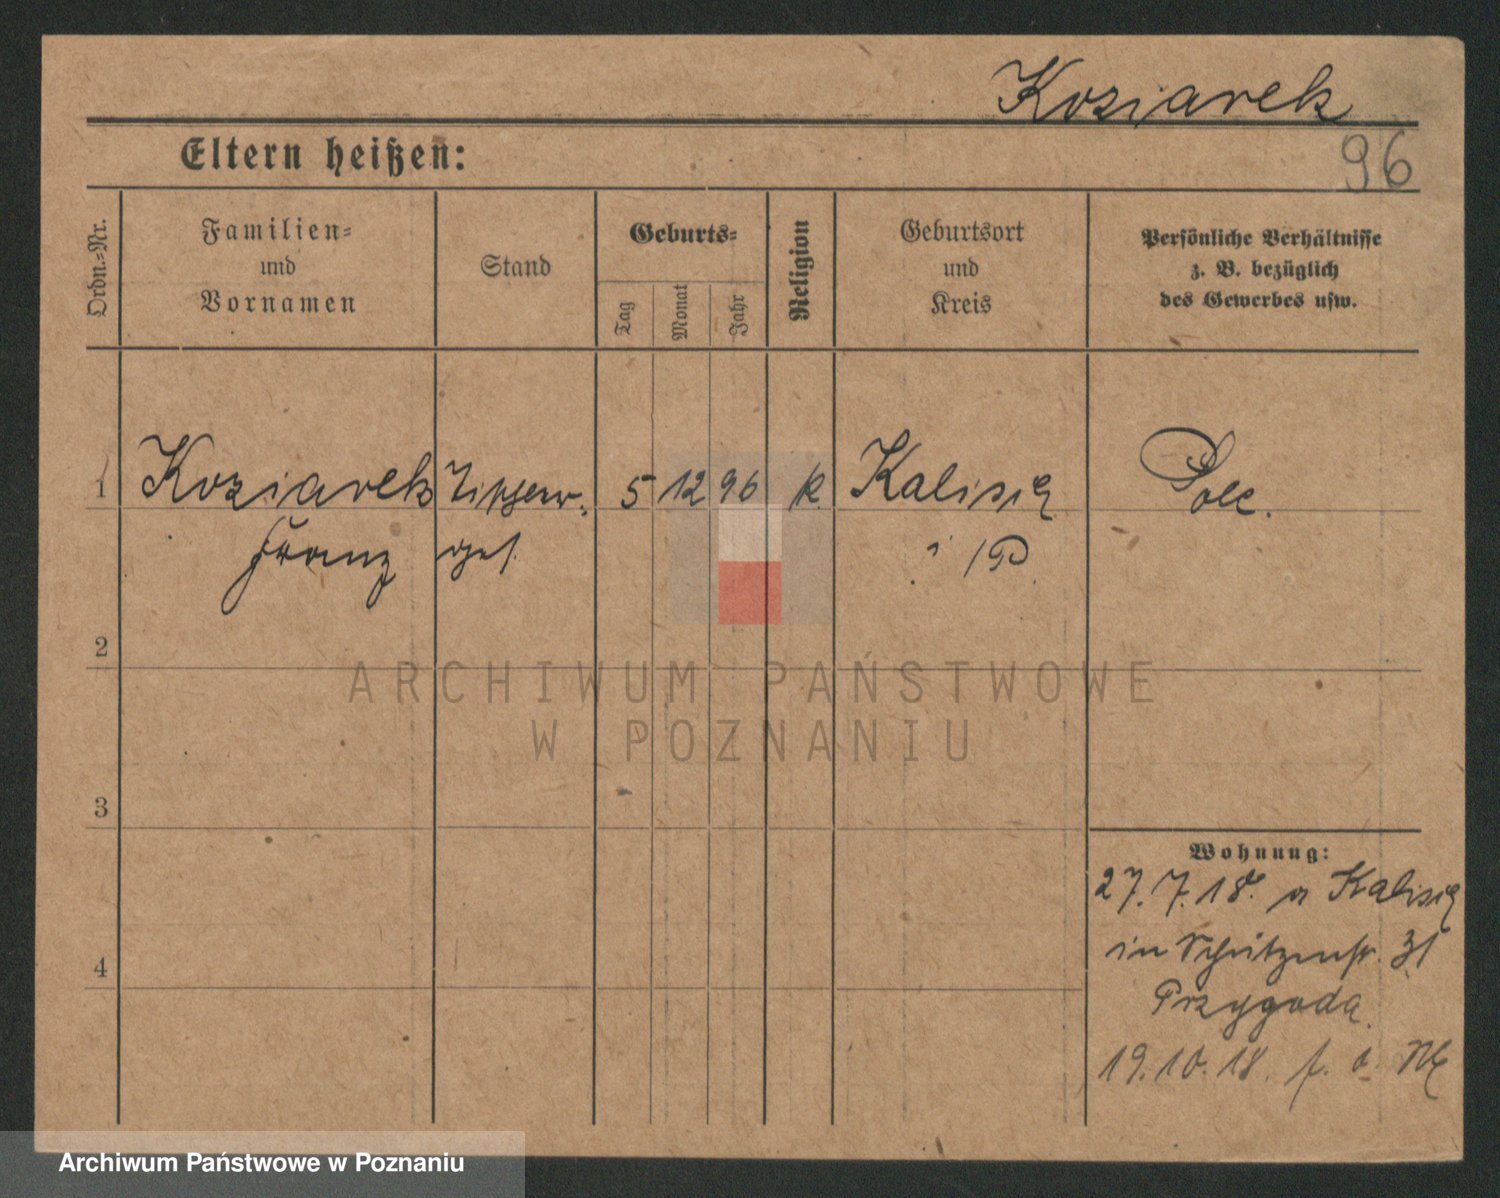 Koziarek
96
Eltern heißen:
Ordn.-Nr.
Familien-
und
Vornamen
Stand
Geburts-
Tag
Monat
Jahr
Religion
Geburtsort
und
Kreis
Persönliche Verhältnisse
z. B. bezüglich
des Gewerbes usw.
1 Koziarek 5 12 96 k. Kalisch
Franz ges.
2
3
4
Wohnung:
27.7.18. Kalisch
in Schützenstr. 31
Przygoda
19.10.18.
ARCHIWUM PAŃSTWOWE
W POZNANIU
Archiwum Państwowe w Poznaniu